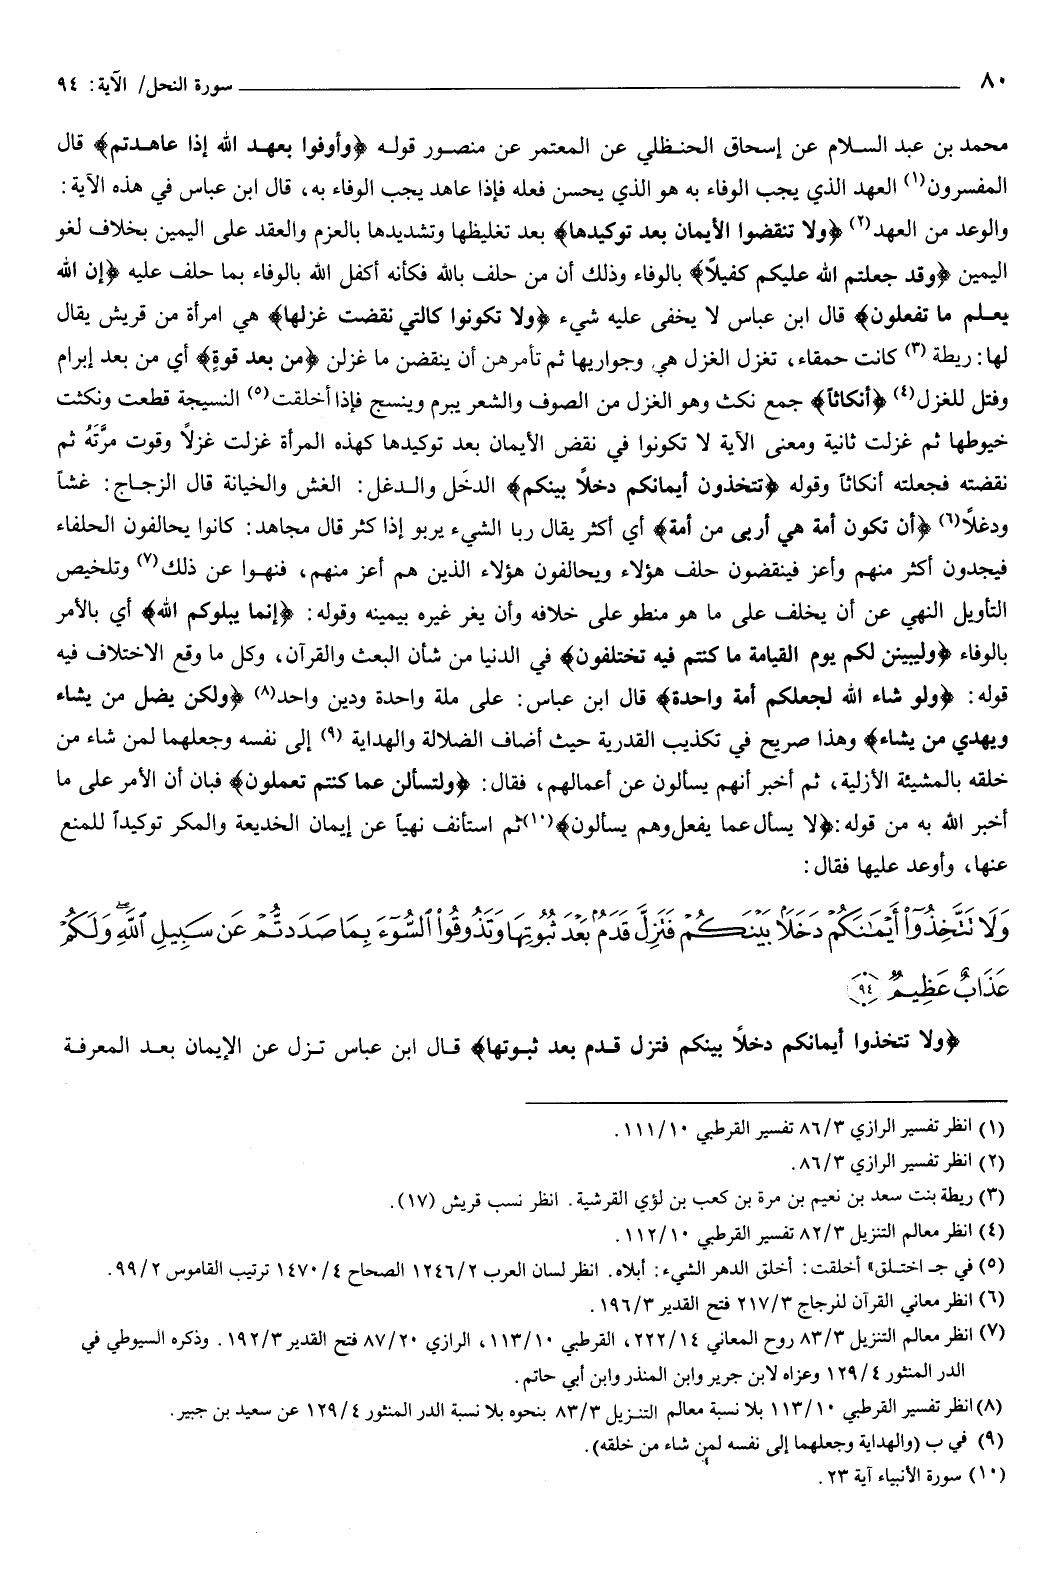 ٨٠ سورة النحل/ الآية: ٩٤
محمد بن عبد السلام عن إسحاق الحنظلي عن المعتمر عن منصور قوله ﴿وأوفوا بعهد الله إذا عاهدتم﴾ قال
المفسرون(١) العهد الذي يجب الوفاء به هو الذي يحسن فعله فإذا عاهد يجب الوفاء به، قال ابن عباس في هذه الآية:
والوعد من العهد(٢) ﴿ولا تنقضوا الأيمان بعد توكيدها﴾ بعد تغليظها وتشديدها بالعزم والعقد على اليمين بخلاف لغو
اليمين ﴿وقد جعلتم الله عليكم كفيلاً﴾ بالوفاء وذلك أن من حلف بالله فكأنه أكفل الله بالوفاء بما حلف عليه ﴿إن الله
يعلم ما تفعلون﴾ قال ابن عباس لا يخفى عليه شيء ﴿ولا تكونوا كالتي نقضت غزلها﴾ هي امرأة من قريش يقال
لها: ريطة(٣) كانت حمقاء، تغزل الغزل هي وجواريها ثم تأمرهن أن ينقضن ما غزلن ﴿من بعد قوةٍ﴾ أي من بعد إبرام
وفتل للغزل(٤) ﴿أنكاثاً﴾ جمع نكث وهو الغزل من الصوف والشعر يبرم وينسج فإذا أخلقت(٥) النسيجة قطعت ونكثت
خيوطها ثم غزلت ثانية ومعنى الآية لا تكونوا في نقض الأيمان بعد توكيدها كهذه المرأة غزلت غزلاً وقوت مرَّتَهُ ثم
نقضته فجعلته أنكاثاً وقوله ﴿تتخذون أيمانكم دخلاً بينكم﴾ الدخَل والدغل: الغش والخيانة قال الزجاج: غشاً
ودغلاً(٦) ﴿أن تكون أمة هي أربى من أمة﴾ أي أكثر يقال ربا الشيء يربو إذا كثر قال مجاهد: كانوا يحالفون الحلفاء
فيجدون أكثر منهم وأعز فينقضون حلف هؤلاء ويحالفون هؤلاء الذين هم أعز منهم، فنهوا عن ذلك(٧) وتلخيص
التأويل النهي عن أن يخلف على ما هو منطو على خلافه وأن يغر غيره بيمينه وقوله: ﴿إنما يبلوكم الله﴾ أي بالأمر
بالوفاء ﴿وليبينن لكم يوم القيامة ما كنتم فيه تختلفون﴾ في الدنيا من شأن البعث والقرآن، وكل ما وقع الاختلاف فيه
قوله: ﴿ولو شاء الله لجعلكم أمة واحدة﴾ قال ابن عباس: على ملة واحدة ودين واحد(٨) ﴿ولكن يضل من يشاء
ويهدي من يشاء﴾ وهذا صريح في تكذيب القدرية حيث أضاف الضلالة والهداية (٩) إلى نفسه وجعلهما لمن شاء من
خلقه بالمشيئة الأزلية، ثم أخبر أنهم يسألون عن أعمالهم، فقال: ﴿ولتسألن عما كنتم تعملون﴾ فبان أن الأمر على ما
أخبر الله به من قوله:﴿لا يسأل عما يفعل وهم يسألون﴾(١٠)ثم استأنف نهياً عن إيمان الخديعة والمكر توكيداً للمنع
عنها، وأوعد عليها فقال:
وَلَا تَتَّخِذُوٓا۟ أَيْمَـٰنَكُمْ دَخَلًۢا بَيْنَكُمْ فَتَزِلَّ قَدَمٌۢ بَعْدَ ثُبُوتِهَا وَتَذُوقُوا۟ ٱلسُّوٓءَ بِمَا صَدَدتُّمْ عَن سَبِيلِ ٱللَّهِ ۖ وَلَكُمْ
عَذَابٌ عَظِيمٌ ٩٤
﴿ولا تتخذوا أيمانكم دخلاً بينكم فتزل قدم بعد ثبوتها﴾ قال ابن عباس تزل عن الإيمان بعد المعرفة
(١) انظر تفسير الرازي ٨٦/٣ تفسير القرطبي ١١١/١٠.
(٢) انظر تفسير الرازي ٨٦/٣.
(٣) ريطة بنت سعد بن نعيم بن مرة بن كعب بن لؤي القرشية. انظر نسب قريش (١٧).
(٤) انظر معالم التنزيل ٨٢/٣ تفسير القرطبي ١١٢/١٠.
(٥) في جـ اختلق» أخلقت: أخلق الدهر الشيء: أبلاه. انظر لسان العرب ١٢٤٦/٢ الصحاح ١٤٧٠/٤ ترتيب القاموس ٩٩/٢.
(٦) انظر معاني القرآن للزجاج ٢١٧/٣ فتح القدير ١٩٦/٣.
(٧) انظر معالم التنزيل ٨٣/٣ روح المعاني ٢٢٢/١٤، القرطبي ١١٣/١٠، الرازي ٨٧/٢٠ فتح القدير ١٩٢/٣. وذكره السيوطي في
الدر المنثور ١٢٩/٤ وعزاه لابن جرير وابن المنذر وابن أبي حاتم.
(٨) انظر تفسير القرطبي ١١٣/١٠ بلا نسبة معالم التنزيل ٨٣/٣ بنحوه بلا نسبة الدر المنثور ١٢٩/٤ عن سعيد بن جبير.
(٩) في ب (والهداية وجعلهما إلى نفسه لمن شاء من خلقه).
(١٠) سورة الأنبياء آية ٢٣.